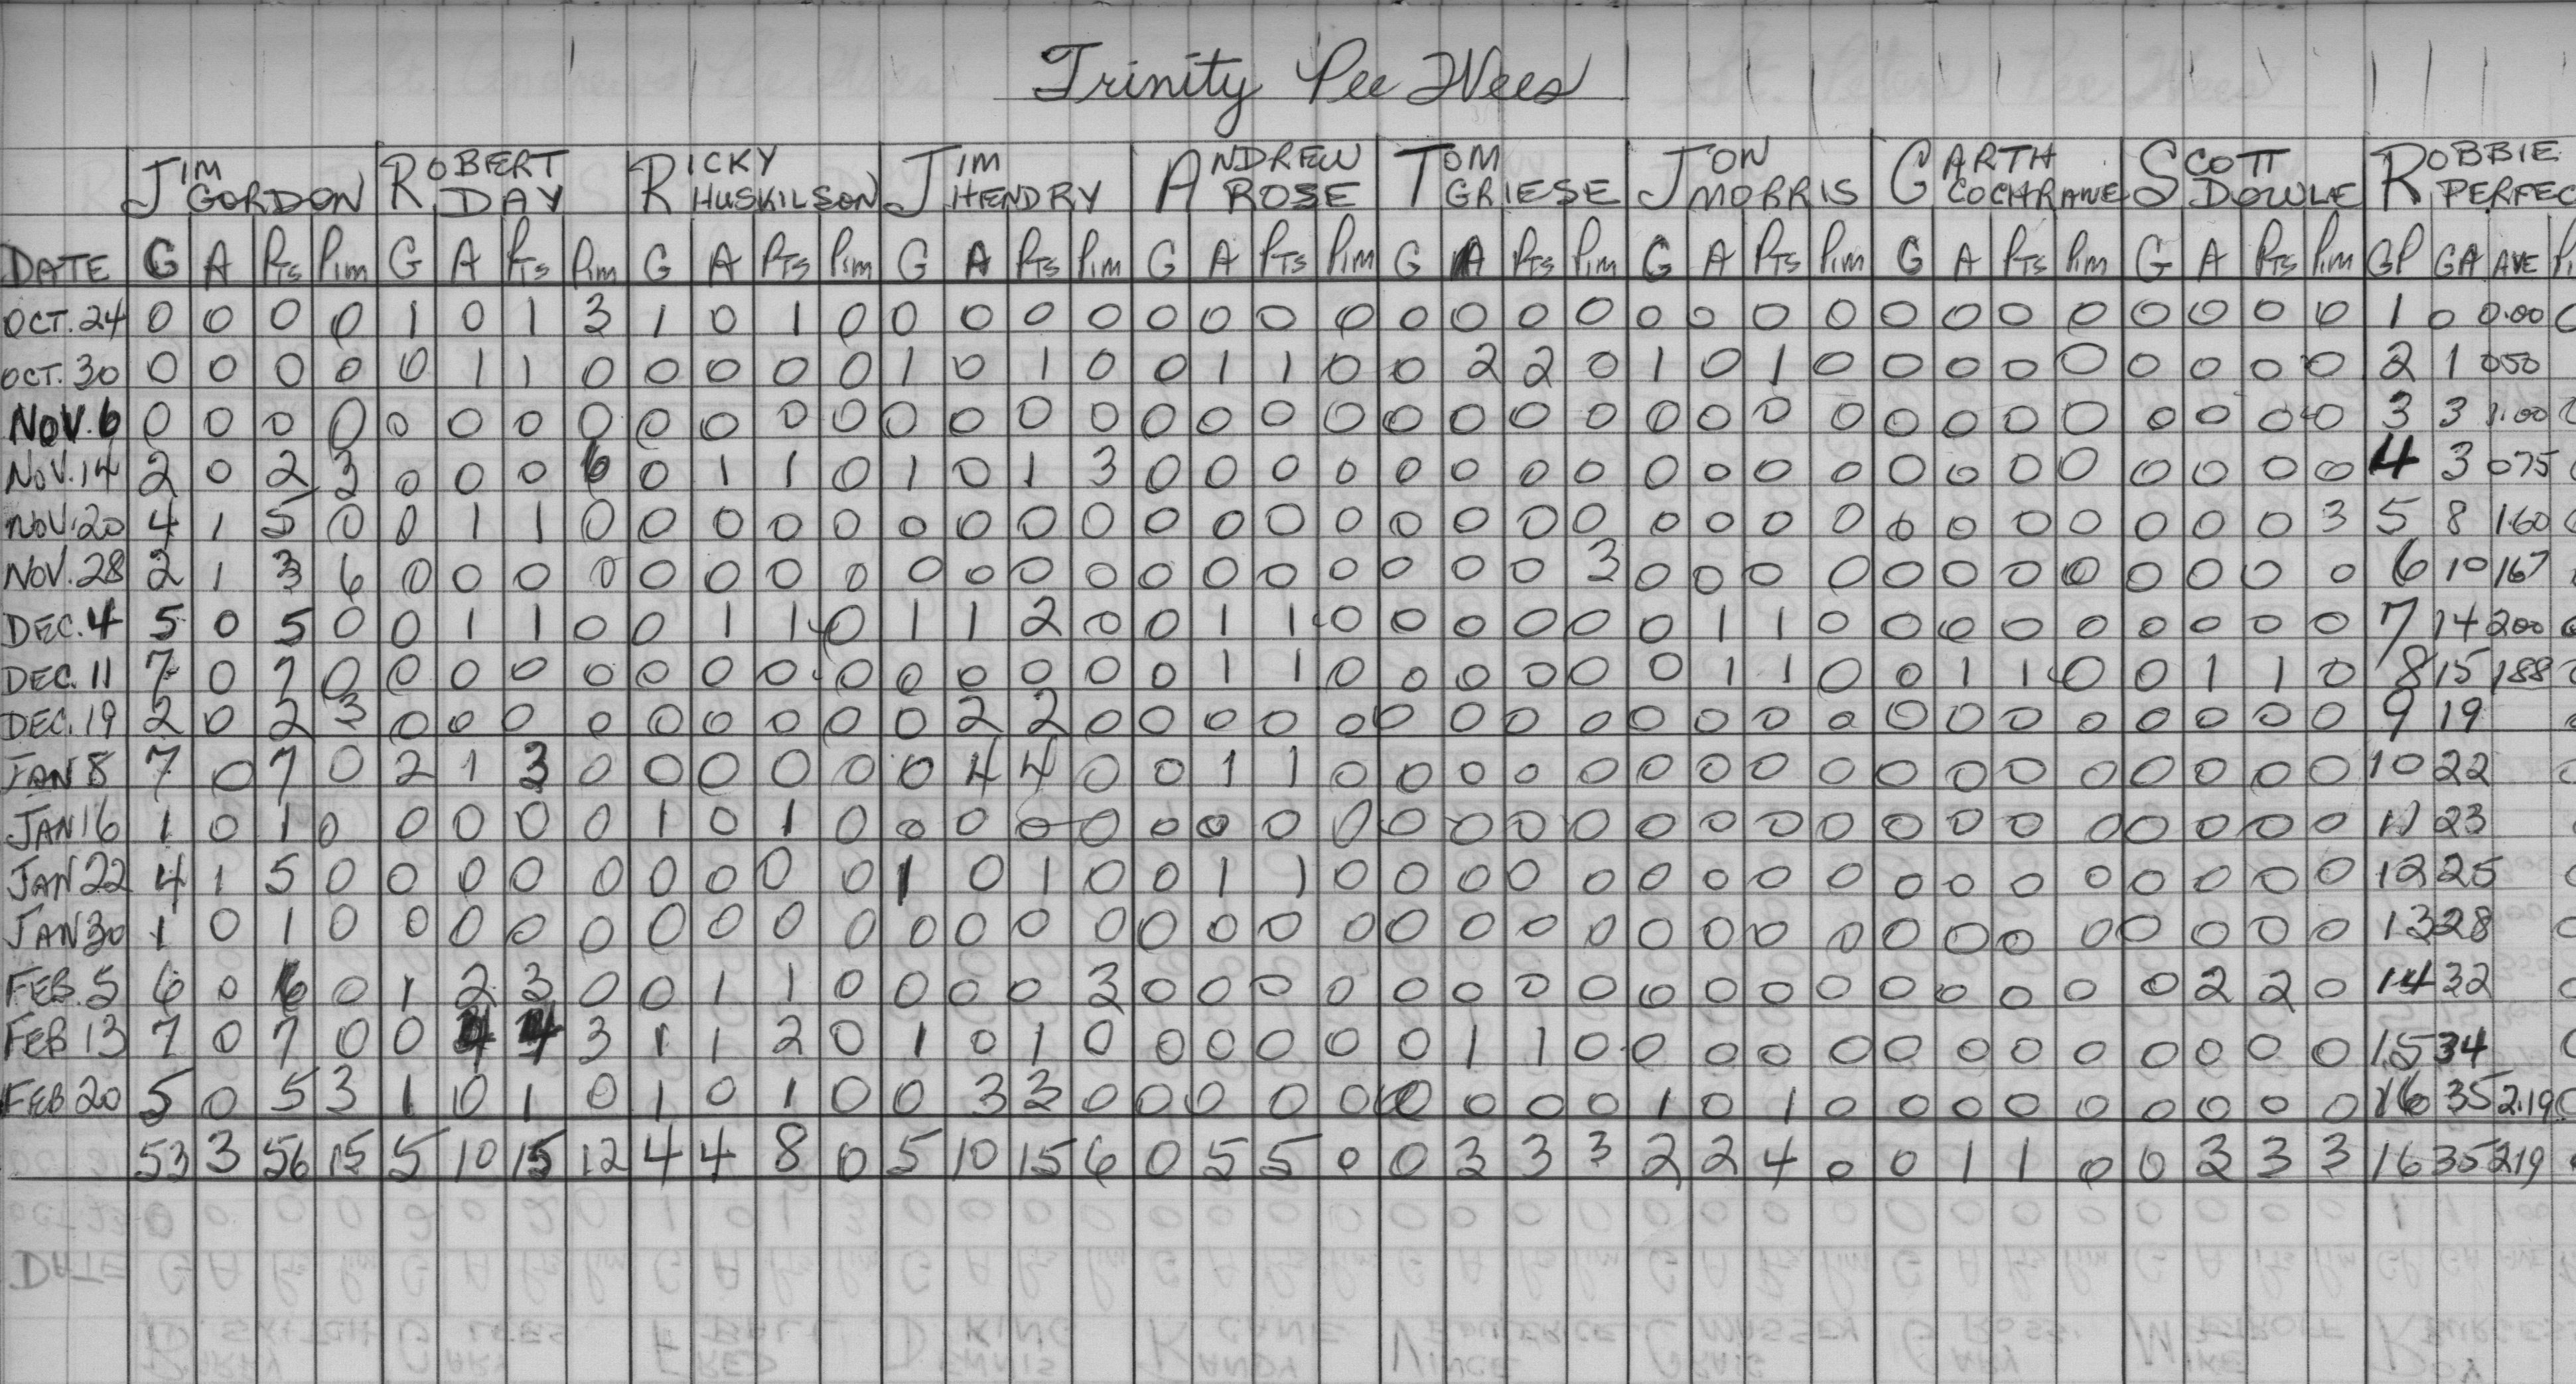 Trinity Pee Wees
JIM GORDON ROBERT DAY RICKY HUSKILSON JIM HENDRY ANDREW ROSE TOM GRIESE JON MORRIS GARTH COCHRANE SCOTT DOWLE ROBBIE PERFEC
DATE G A PTS PIM G A PTS PIM G A PTS PIM G A PTS PIM G A PTS PIM G A PTS PIM G A PTS PIM G A PTS PIM G A PTS PIM GP GA AVE
OCT. 24 0 0 0 0 1 0 1 3 1 0 1 0 0 0 0 0 0 0 0 0 0 0 0 0 0 0 0 0 0 0 0 0 0 0 0 0 1 0 0.00
OCT. 30 0 0 0 0 0 1 1 0 0 0 0 0 1 0 1 0 0 1 1 0 0 2 2 0 1 0 1 0 0 0 0 0 0 0 0 0 2 1 050
NOV. 6 0 0 0 0 0 0 0 0 0 0 0 0 0 0 0 0 0 0 0 0 0 0 0 0 0 0 0 0 0 0 0 0 0 0 0 0 3 3 1.00
NOV. 14 2 0 2 3 0 0 0 6 0 1 1 0 1 0 1 3 0 0 0 0 0 0 0 0 0 0 0 0 0 0 0 0 0 0 0 0 4 3 075
NOV. 20 4 1 5 0 0 1 1 0 0 0 0 0 0 0 0 0 0 0 0 0 0 0 0 0 0 0 0 0 0 0 0 0 0 0 0 3 5 8 160
NOV. 28 2 1 3 6 0 0 0 0 0 0 0 0 0 0 0 0 0 0 0 0 0 0 0 3 0 0 0 0 0 0 0 0 0 0 0 0 6 10 167
DEC. 4 5 0 5 0 0 1 1 0 0 1 1 0 1 1 2 0 0 1 1 0 0 0 0 0 0 1 1 0 0 0 0 0 0 0 0 0 7 14 200
DEC. 11 7 0 7 0 0 0 0 0 0 0 0 0 0 0 0 0 0 1 1 0 0 0 0 0 0 1 1 0 0 1 1 0 0 1 1 0 8 15 188
DEC. 19 2 0 2 3 0 0 0 0 0 0 0 0 0 2 2 0 0 0 0 0 0 0 0 0 0 0 0 0 0 0 0 0 0 0 0 0 9 19
JAN 8 7 0 7 0 2 1 3 0 0 0 0 0 0 4 4 0 0 1 1 0 0 0 0 0 0 0 0 0 0 0 0 0 0 0 0 0 10 22
JAN 16 1 0 1 0 0 0 0 0 1 0 1 0 0 0 0 0 0 0 0 0 0 0 0 0 0 0 0 0 0 0 0 0 0 0 0 0 11 23
JAN 22 4 1 5 0 0 0 0 0 0 0 0 0 1 0 1 0 0 1 1 0 0 0 0 0 0 0 0 0 0 0 0 0 0 0 0 0 12 25
JAN 30 1 0 1 0 0 0 0 0 0 0 0 0 0 0 0 0 0 0 0 0 0 0 0 0 0 0 0 0 0 0 0 0 0 0 0 0 13 28
FEB. 5 6 0 6 0 1 2 3 0 0 1 1 0 0 0 0 3 0 0 0 0 0 0 0 0 0 0 0 0 0 0 0 0 0 2 2 0 14 32
FEB 13 7 0 7 0 0 4 4 3 1 1 2 0 1 0 1 0 0 0 0 0 0 1 1 0 0 0 0 0 0 0 0 0 0 0 0 0 15 34
FEB 20 5 0 5 3 1 0 1 0 1 0 1 0 0 3 3 0 0 0 0 0 0 0 0 0 1 0 1 0 0 0 0 0 0 0 0 0 16 35 2.19
53 3 56 15 5 10 15 12 4 4 8 0 5 10 15 6 0 5 5 0 0 3 3 3 2 2 4 0 0 1 1 0 0 3 3 3 16 35 219